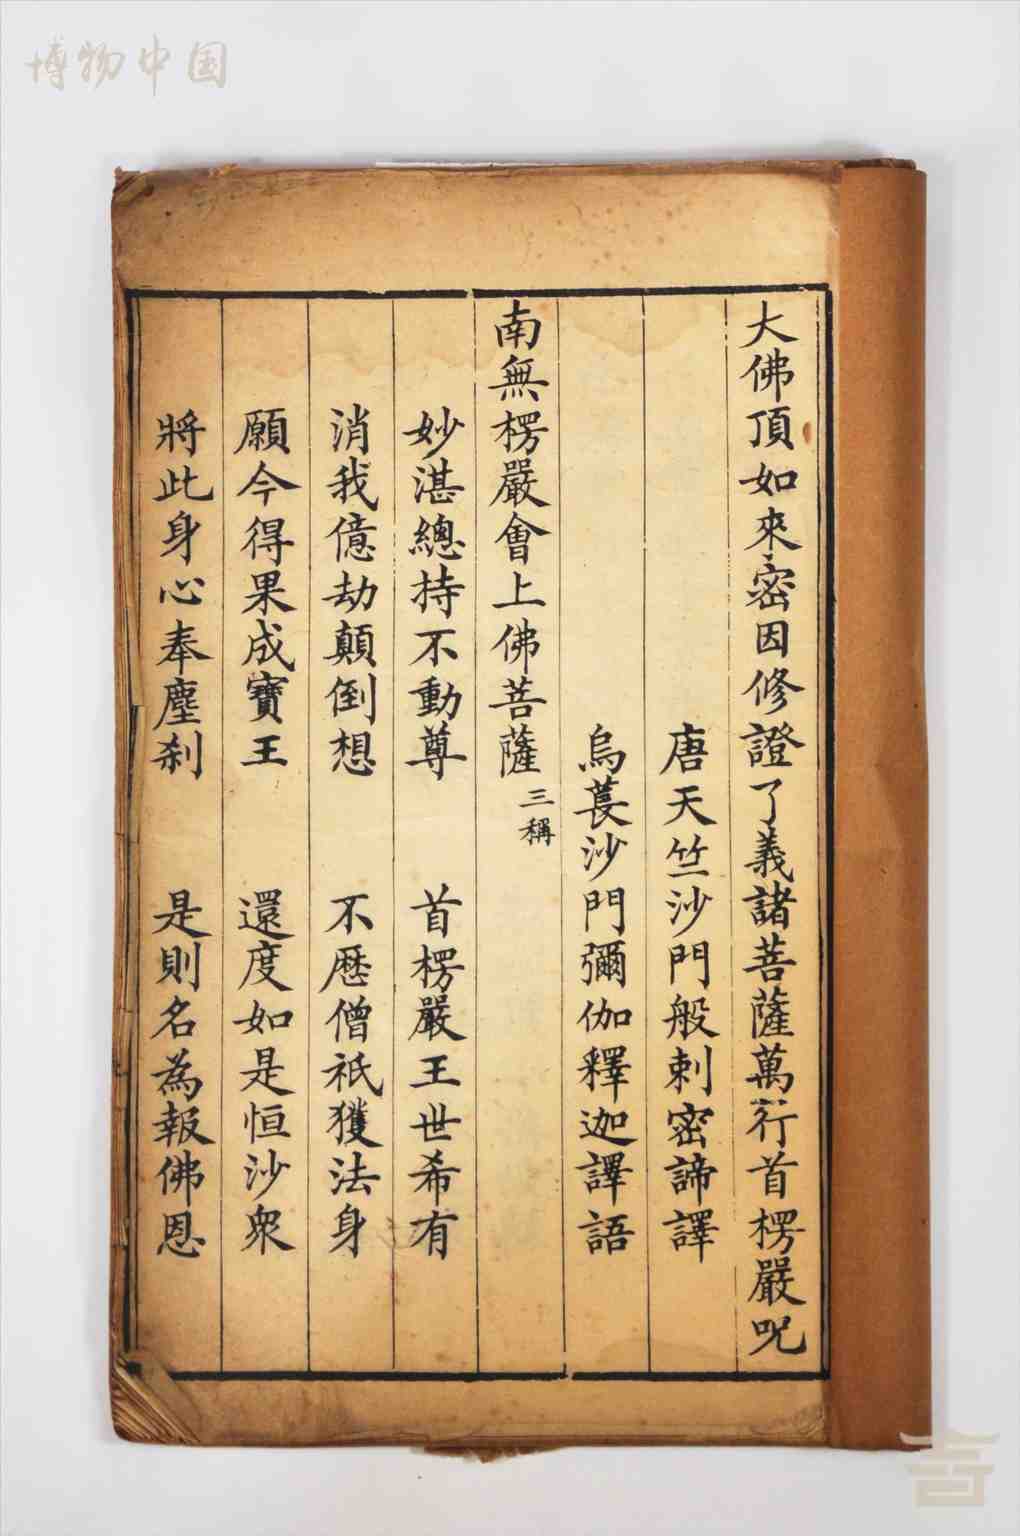 博物中国
大佛頂如來密因修證了義諸菩薩萬行首楞嚴呪
唐天竺沙門般剌密諦譯
烏萇沙門彌伽釋迦譯語
南無楞嚴會上佛菩薩三稱
妙湛總持不動尊 首楞嚴王世希有
消我億劫顛倒想 不歷僧祇獲法身
願今得果成寶王 還度如是恒沙衆
將此身心奉塵刹 是則名為報佛恩